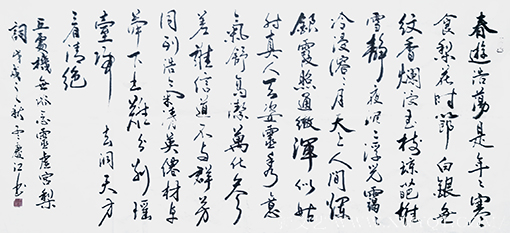 春遊浩蕩是年々寒
食梨花時節白錦無
紋香爛漫玉枝瓊葩堆
雪靜夜沉々浮光靄々
冷浸溶々月天上人間爛
銀霞照通徹渾似姑
射真人天姿靈秀意
氣舒高潔萬化參
差誰信道不與群芳
同列浩氣清英僊材卓
犖下土難分別瑤
臺歸去洞天方
看清絕
丘處機無俗念靈虛宮梨
詞戊戌之秋